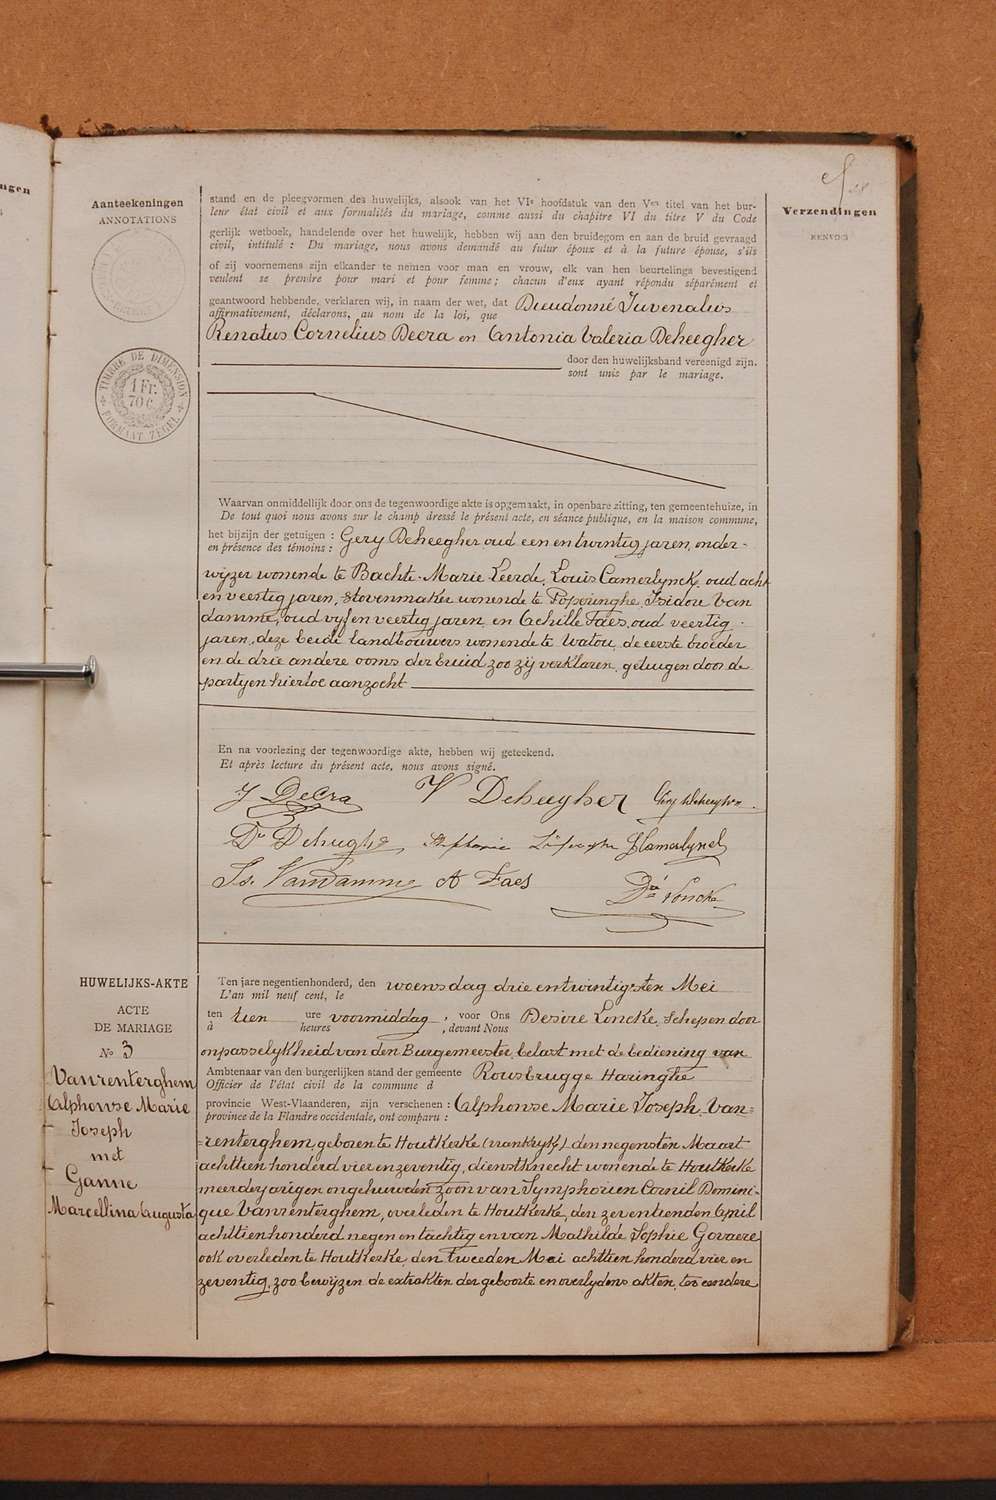 ngen
Aanteekeningen
ANNOTATIONS
Verzendingen
RENVOIS
TIMBRE DE DIMENSION
1 Fr.
70 c.
FORMAAT ZEGEL
stand en de pleegvormen des huwelijks, alsook van het VIe hoofdstuk van den Ven titel van het bur-
leur état civil et aux formalités du mariage, comme aussi du chapitre VI du titre V du Code
gerlijk wetboek, handelende over het huwelijk, hebben wij aan den bruidegom en aan de bruid gevraagd
civil, intitulé : Du mariage, nous avons demandé au futur époux et à la future épouse, s'ils
of zij voornemens zijn elkander te nemen voor man en vrouw, elk van hen beurtelings bevestigend
veulent se prendre pour mari et pour femme ; chacun d'eux ayant répondu séparément et
geantwoord hebbende, verklaren wij, in naam der wet, dat Dieudonné Juvenalus
affirmativement, déclarons, au nom de la loi, que
Renatus Cornelius Decra en Antonia Valeria Deheegher
door den huwelijksband vereenigd zijn.
sont unis par le mariage.
Waarvan onmiddelijk door ons de tegenwoordige akte is opgemaakt, in openbare zitting, ten gemeentehuize, in
De tout quoi nous avons sur le champ dressé le présent acte, en séance publique, en la maison commune,
het bijzijn der getuigen : Gery Deheegher oud een en twintig jaren, onder-
en présence des témoins :
wijzer wonende te Bachte-Marie Leerde, Louis Camerlynck, oud acht
en veertig jaren, stovenmaker wonende te Poperinghe, Isidore Van
damme, oud vyf en veertig jaren en Achille Faes, oud veertig
jaren, deze beide landbouwers wonende te Watou, de eerste broeder
en de drie andere ooms der bruid zoo zij verklaren, getuigen door de
partyen hiertoe aanzocht
En na voorlezing der tegenwoordige akte, hebben wij geteekend.
Et après lecture du présent acte, nous avons signé.
J Decra V Deheegher Gery Deheegher
Dr Deheegher L Camerlynck
Is. Vandamme A Faes Dré Loncke
HUWELIJKS-AKTE
ACTE
DE MARIAGE
No 3
Vanrenterghem
Alphonse Marie
Joseph
met
Ganne
Marcellina Augusta
Ten jare negentienhonderd, den woensdag drie en twintigsten Mei
L'an mil neuf cent, le
ten tien ure voormiddag, voor Ons Desire Loncke, Schepen door
à heures , devant Nous
onpasselykheid van den Burgemeester, belast met de bediening van
Ambtenaar van den burgerlijken stand der gemeente Rousbrugge Haringhe
Officier de l'état civil de la commune d
provincie West-Vlaanderen, zijn verschenen : Alphonse Marie Joseph Van-
province de la Flandre occidentale, ont comparu :
renterghem, geboren te Houtkerke (vrankryk) den negensten Maart
achttien honderd vier en zeventig, dienstknecht wonende te Houtkerke
meerderjarigen ongehuwden zoon van Symphorien Cornil Domini-
que Vanrenterghem, overleden te Houtkerke, den zeventienden April
achttienhonderd negen en tachtig en van Mathilde Sophie Govaere
ook overleden te Houtkerke, den tweeden Mei achttien honderd vier en
zeventig, zoo bewijzen de extrakten der geboorte en overlydens akten, ter eendere